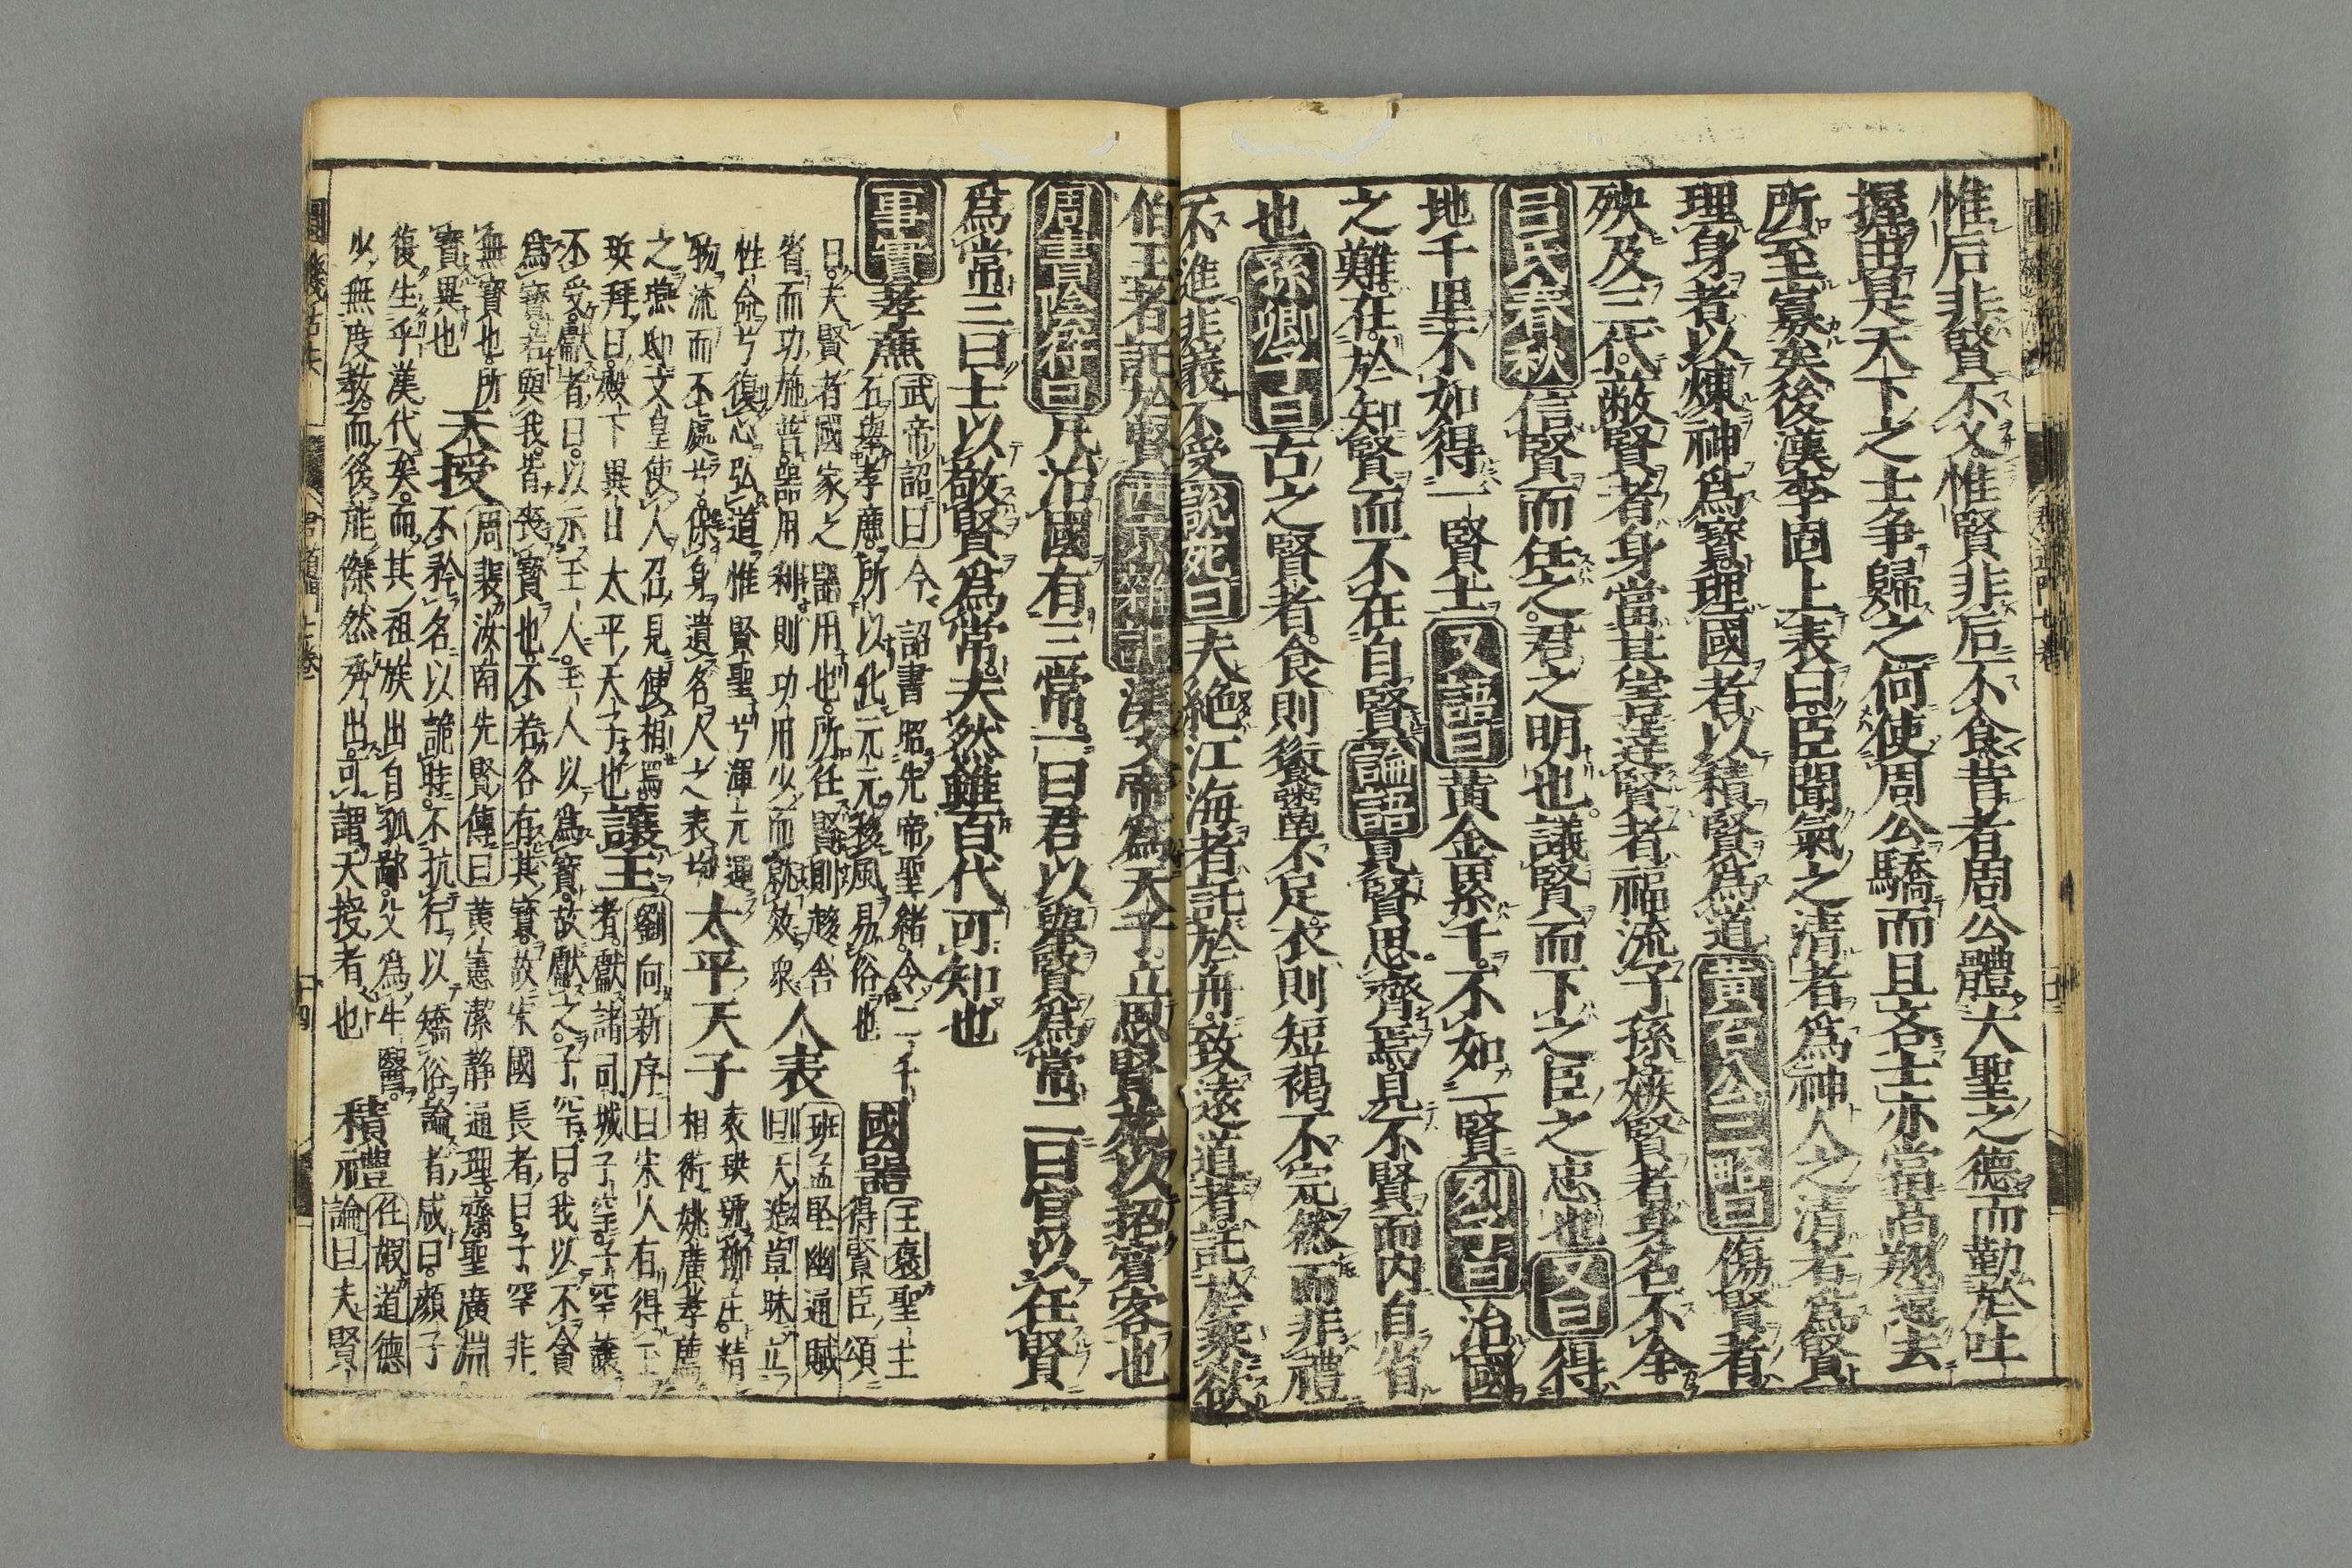 惟后非賢不乂惟賢非后不食昔者周公體大聖之德而勤於吐
握由是天下之士争歸之何使周公驕而且吝士亦當高翔遠去
所至寡矣後漢李固上表曰臣聞氣之清者爲神人之清者爲賢
理身者以煉神爲寶理國者以積賢爲道黄石公三略曰傷賢者
殃及三代蔽賢者身當其害達賢者福流子孫嫉賢者身名不全
吕氏春秋信賢而任之君之明也議賢而下之臣之忠也又曰得
地千里不如得一賢士又語曰黄金累千不如一賢列子曰治國
之難在於知賢而不在自賢論語見賢思齊焉見不賢而内自省
也孫卿子曰古之賢者食則饘粥不足衣則短褐不完然而非禮
不進非義不受説苑曰夫絶江海者託於舟致遠道者託於乘欲
伯王者託於賢西京雜記漢文帝爲太子立思賢苑以招賓客也
周書陰符曰凡治國有三常一曰君以舉賢爲常二曰官以任賢
爲常三曰士以敬賢爲常夫然雖百代可知也
事實
孝廉
武帝詔曰今詔書昭先帝聖緒令二千
石舉孝廉所以化元元移風易俗也
國器
王褒聖主
得賢臣頌
曰夫賢者國家之器用也所任賢則趍舍
省而功施普器用利則功用少而就效衆
人表
班孟堅幽通賦
曰天造草昧立
性命兮復心弘道惟賢聖兮渾元運
物流而不處兮保身遺名民之表兮
太平天子
表珙號柳庄精
相術姚廣孝薦
之燕邸文皇使人召見使相焉
珙拜曰殿下異日太平天子也
讓王
劉向新序曰宋人有得玉
者獻諸司城子罕子罕讓
不受獻者曰以示玉人玉人以爲寶故獻之子罕曰我以不貪
爲寶若與我皆喪寶也不若各有其寶故宋國長者曰子罕非
無寶也所
寶異也
天授
周裴汝南先賢傳曰黄憲潔静通理齋聖廣淵
不矜名以詭時不抗行以矯俗論者咸曰顔子
復生乎漢代矣而其祖族出自孤鄙父爲牛毉
少無度教而後能傑然秀出可謂天授者也
積禮
任嘏道德
論曰夫賢